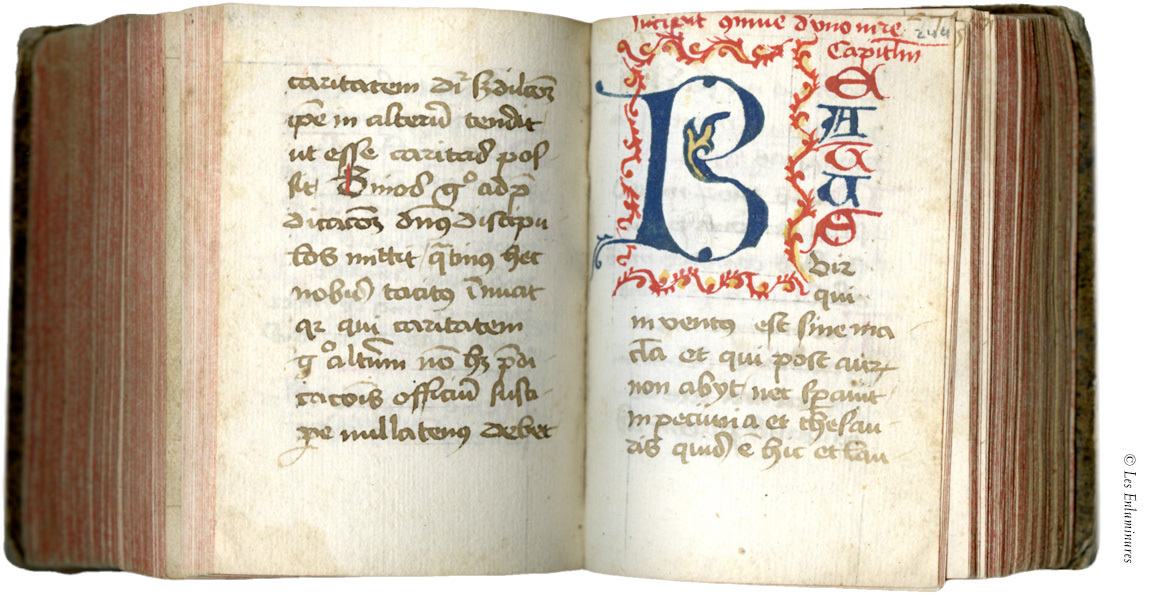 caritatem dr̄ sꝫ dilcō
ip̄e in alterū tendit
ut esse caritas pos
sit Binos gͦ ad p̄
dicatōeꝫ dn̄s discipu
los mittit q̄tinꝰ hec
nobis tacitꝰ īnuit
qꝛ qui caritatem
gͦ alt̄um nō hꝫ p̄di
catōis officiū susci
pe nullatenꝰ debet
Incipit ꝯmue d'uno mre
Capitlm
B
E
A
T
U
S
vir
qui
inventꝰ est sine ma
cla et qui post auꝝ
non abyt nec sp̄auit
in pecunia et thesau
ris quis ē hic et lau
© Les Enluminures